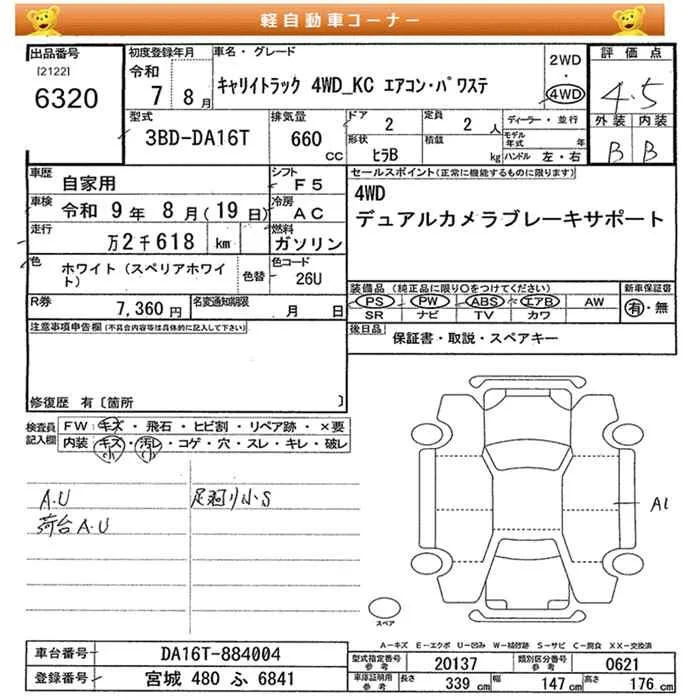 軽自動車コーナー
出品番号
[2122]
6320
初度登録年月
令和
7 8月
車名・グレード
キャリイトラック 4WD_KC エアコン・パワステ
2WD
・
4WD
評価点
4.5
外装 内装
B B
型式
3BD-DA16T
排気量
660
CC
ドア
2
定員
2 人
形状
ヒラB
積載
kg
ディーラー・並行
モデル年式 年
ハンドル 左・右
車歴
自家用
シフト
F5
車検
令和 9年 8月(19日)
冷房
AC
走行
万2千618 km
燃料
ガソリン
色
ホワイト(スペリアホワイト)
色替
色コード
26U
R券
7,360円
名変通知期限
月 日
セールスポイント(正常に機能するものに限ります)
4WD
デュアルカメラブレーキサポート
装備品(純正品に限り○をつけてください)
PS PW ABS エアB AW
SR ナビ TV カワ
新車保証書
有・無
後日品
保証書・取説・スペアキー
注意事項申告欄(不具合内容等は具体的に記入して下さい)
修復歴 有〔箇所 〕
検査員記入欄
FW キズ・飛石・ヒビ割・リペア跡・×要
内装 キズ・汚レ・コゲ・穴・スレ・キレ・破レ
小 小
A.U
足廻り小S
荷台A.U
A1
スペア
A-キズ E-エクボ U-凹み W-補修跡 S-サビ C-腐食 XX-交換済
車台番号
DA16T-884004
登録番号
宮城 480 ふ 6841
型式指定番号
参考
20137
類別区分番号
参考
0621
車庫証明用
参考
長さ 339 cm
幅 147 cm
高さ 176 cm